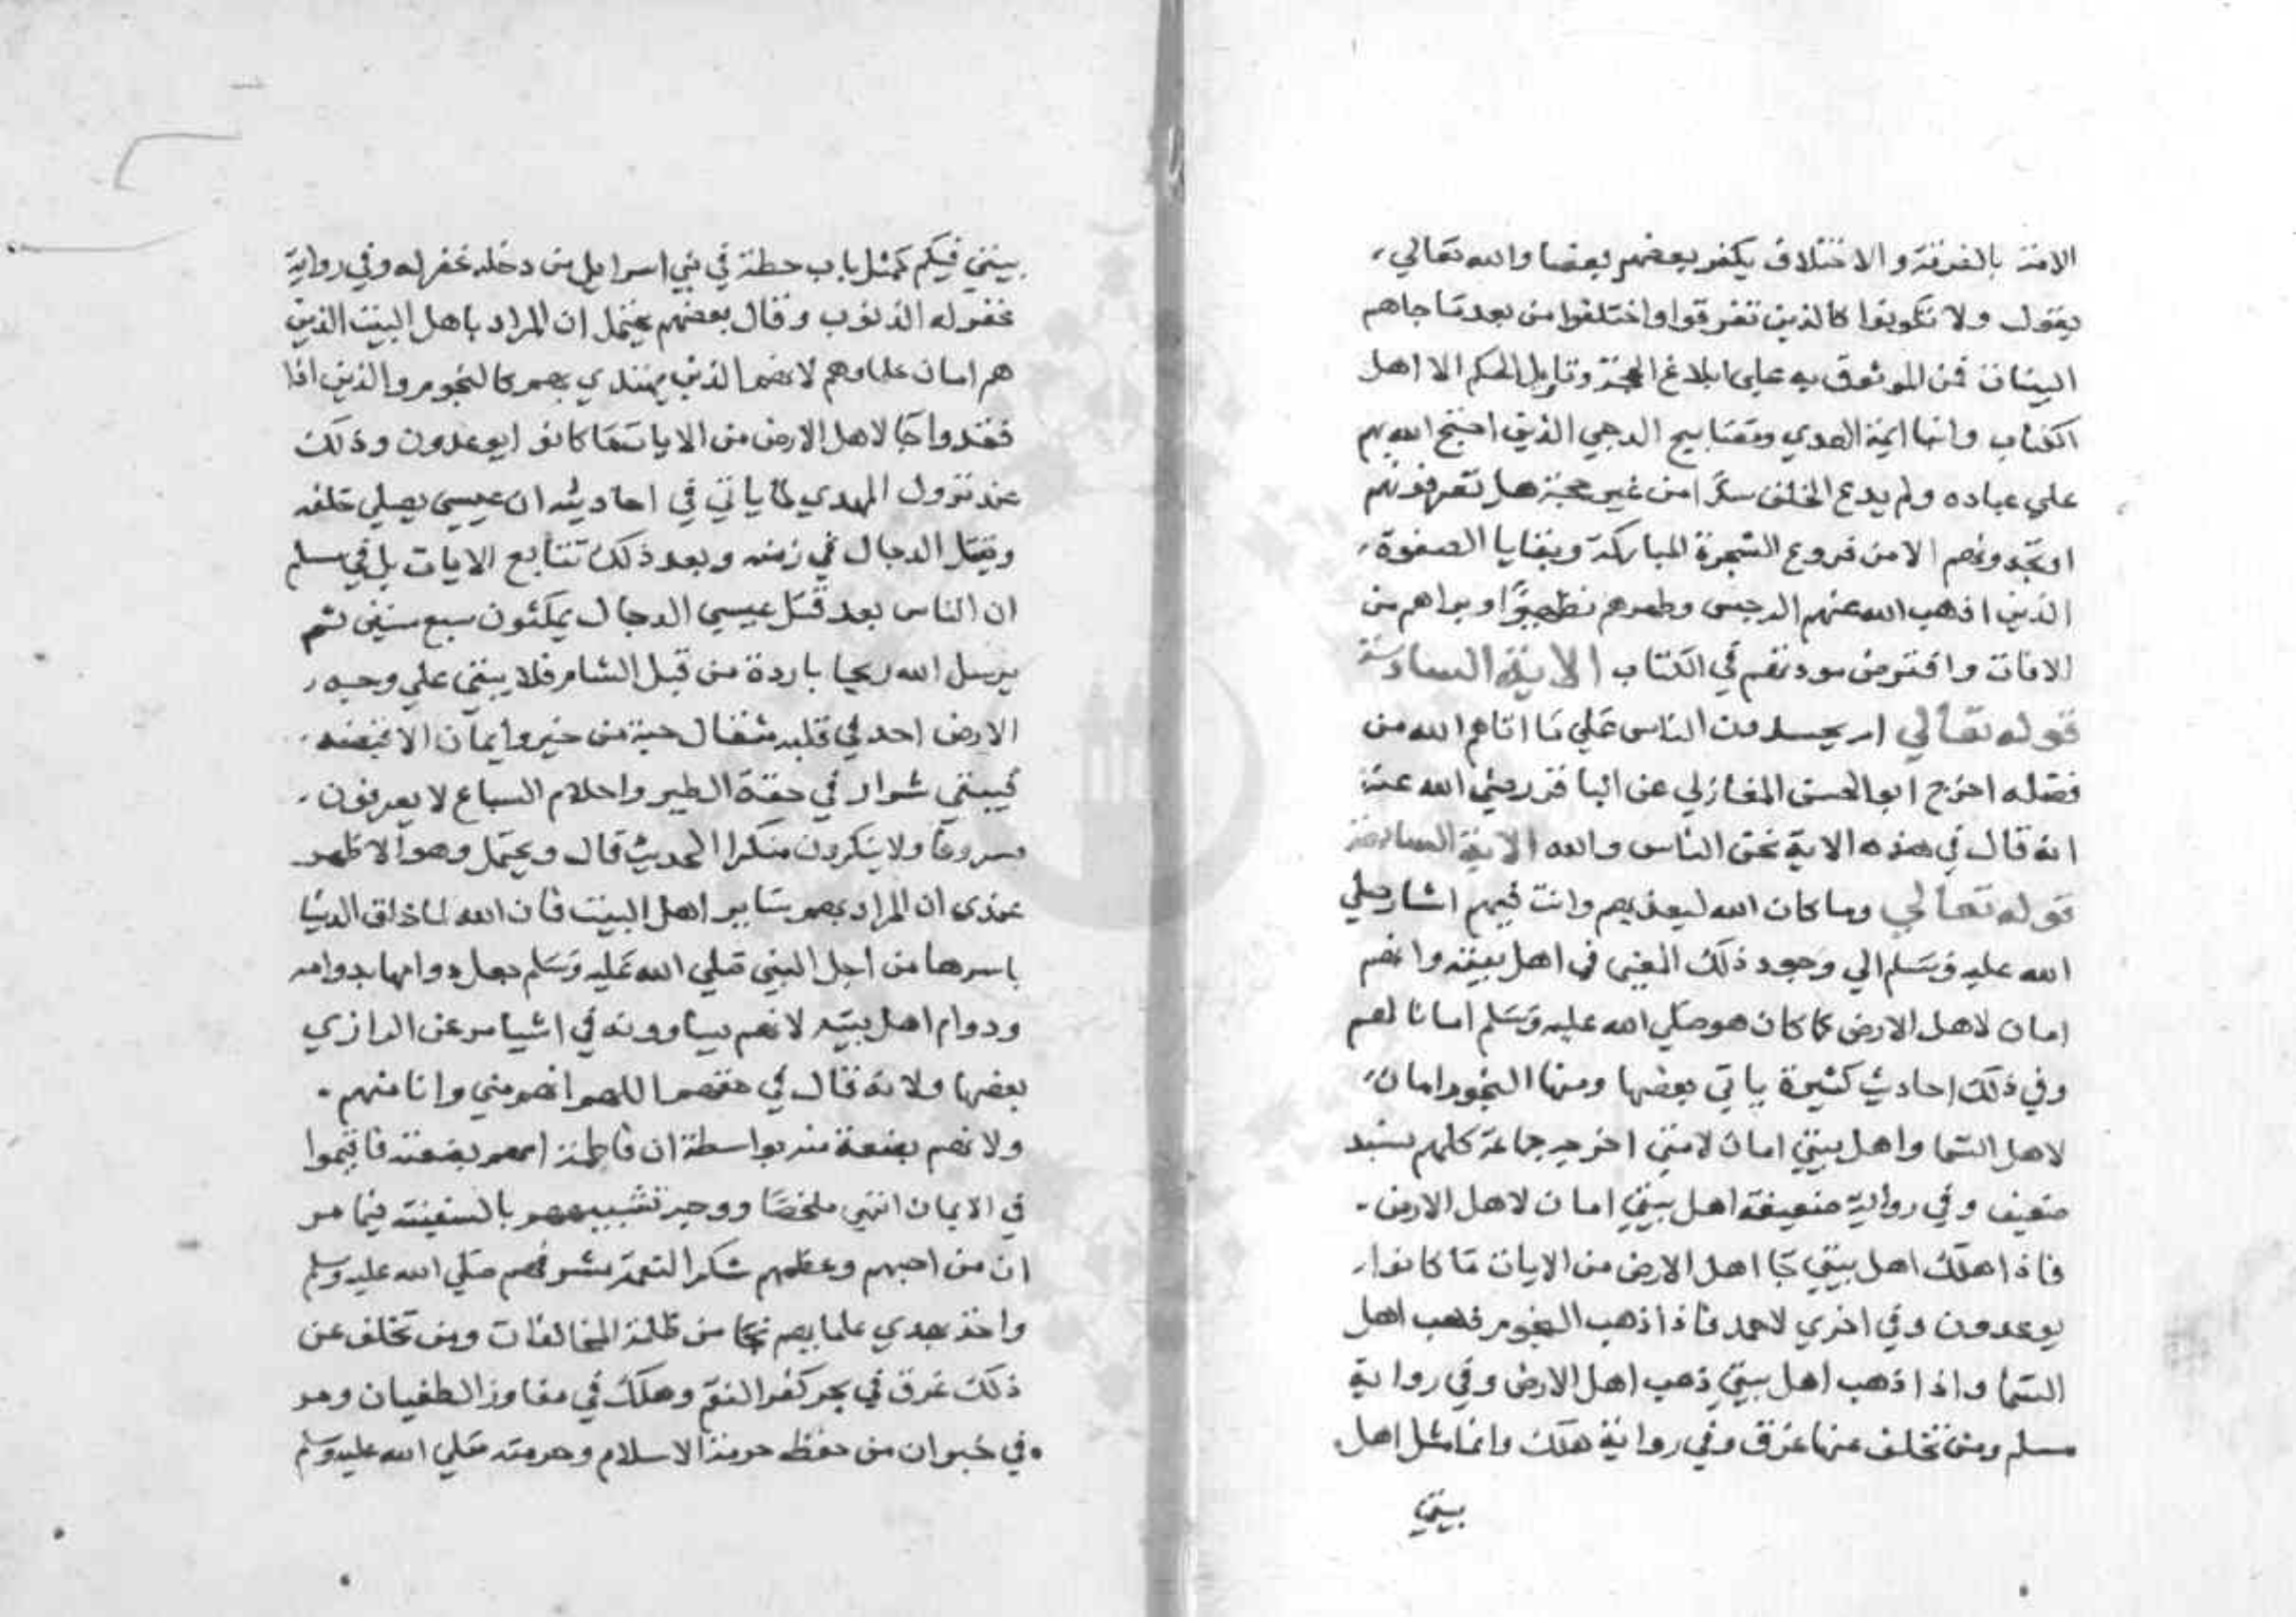 الامة بالفرقة والاختلاف يكفر بعضهم بعضا والله تعالي
يقول ولا تكونوا كالذين تفرقوا واختلفوا من بعد ما جاهم
البينات فمن الموثوق به علي ابلاغ الحجة وتاويل الحكم الا اهل
الكتاب وابنا ايمة الهدي ومصابيح الدجي الذين احتج الله بهم
علي عباده ولم يدع الخلق سدا من غير حجة هل تعرفونهم
اوتجدونهم الا من فروع الشجرة المباركة وبقايا الصفوة
الذين اذهب الله عنهم الرجس وطهرهم تطهيرا وبراهم من
الافات وافترض مودتهم في الكتاب الاية السادسة
قوله تعالي ام يحسدون الناس علي ما اتاهم الله من
فضله اخرج ابو الحسن المغازلي عن الباقر رضي الله عنه
انه قال في هذه الاية نحن الناس والله الاية السابعة
قوله تعالي وما كان الله ليعذبهم وانت فيهم اشار صلي
الله عليه وسلم الي وجود ذلك المعني في اهل بيته وانهم
امان لاهل الارض كما كان هو صلي الله عليه وسلم امانا لهم
وفي ذلك احاديث كثيرة ياتي بعضها ومنها النجوم امان
لاهل السما واهل بيتي امان لامتي اخرجه جماعة كلهم بسند
ضعيف وفي رواية ضعيفة اهل بيتي امان لاهل الارض
فاذا هلك اهل بيتي جا اهل الارض من الايات ما كانوا
يوعدون وفي اخري لاحمد فاذا ذهب النجوم ذهب اهل
السما واذا ذهب اهل بيتي ذهب اهل الارض وفي رواية
مسلم ومن تخلف عنها غرق وفي رواية هلك وانما مثل اهل
بيتي
بيتي فيكم كمثل باب حطة في بني اسرايل من دخله غفر له وفي رواية
غفر له الذنوب وقال بعضهم يحتمل ان المراد باهل البيت الذين
هم امان علماوهم لانهم الذين يهتدي بهم كالنجوم والذين اذا
فقدوا جا لاهل الارض من الايات ما كانوا يوعدون وذلك
عند نزول المهدي لما ياتي في احاديثه ان عيسي يصلي خلفه
ويقتل الدجال في زمنه وبعد ذلك تتابع الايات بل في مسلم
ان الناس بعد قتل عيسي الدجال يمكثون سبع سنين ثم
يرسل الله ريحا باردة من قبل الشام فلا يبقي علي وجه
الارض احد في قلبه مثقال حبة من خير وايمان الا قبضته
فيبقي شرار في خفة الطير واحلام السباع لا يعرفون
معروفا ولا ينكرون منكرا الحديث قال ويحتمل وهو الاظهر
عندي ان المراد بهم ساير اهل البيت فان الله لما خلق الدنيا
باسرها من اجل النبي صلي الله عليه وسلم جعل دوامها بدوامه
ودوام اهل بيته لانهم يساوونه في اشيا مر عن الرازي
بعضها ولانه قال في حقهم اللهم انهم مني وانا منهم
ولانهم بضعة منه بواسطة ان فاطمة امهم بضعته فاقيموا
في الامان انتهي ملخصا ووجه تشبيههم بالسفينة فيما مر
ان من احبهم وعظمهم شكرا لنعمة مشرفهم صلي الله عليه وسلم
واخذ بهدي علمايهم نجا من ظلمة المخالفات ومن تخلف عن
ذلك غرق في بحر كفر النعم وهلك في مفاوز الطغيان ومر
في خبر ان من حفظ حرمة الاسلام وحرمته صلي الله عليه وسلم